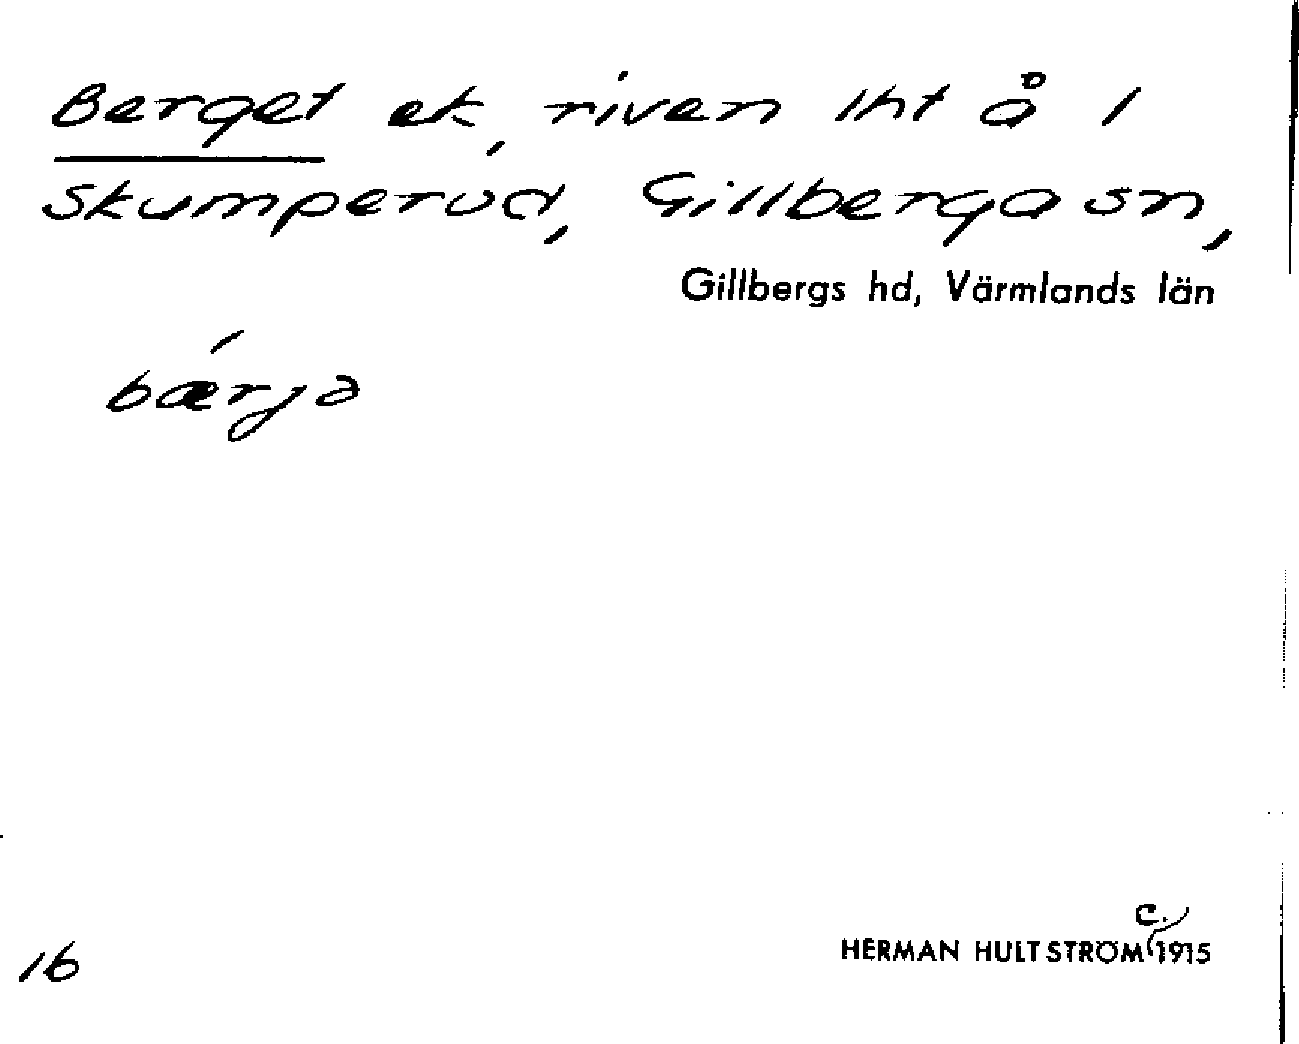 Berget ek, riven lht å 1
Skumperud, Gillberga sn,
Gillbergs hd, Värmlands län
bærjə
c.
HERMAN HULTSTRÖM 1915
16